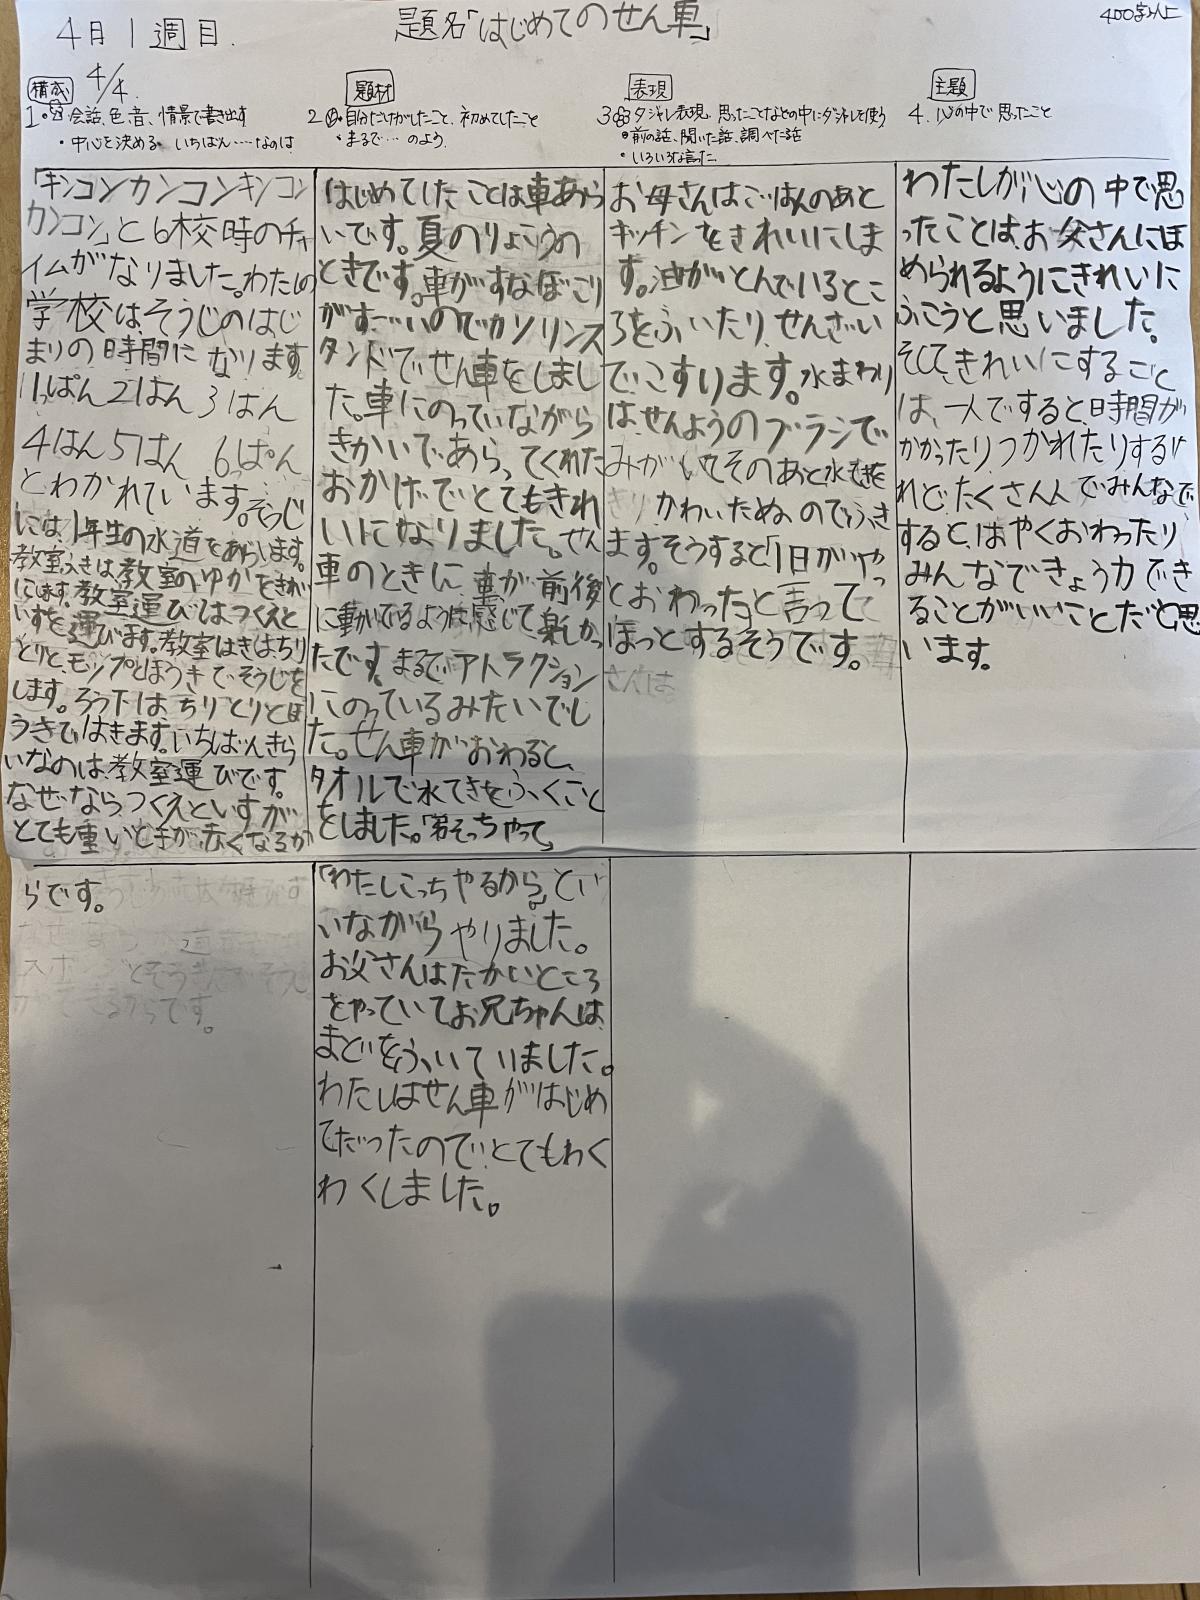 4月1週目
題名「はじめてのせん車」
400字以上
4/4
構成
1. 会話、色、音、情景で書き出す
・中心を決める。いちばん……なのは
題材
2 自分だけがしたこと、初めてしたこと
・まるで…のよう。
表現
3 ダジャレ表現 思ったことなどの中にダジャレを使う
・前の話、聞いた話、調べた話
・いろいろな言った
主題
4. 心の中で思ったこと
「キンコンカンコンキンコン
カンコン」と6校時のチャ
イムがなりました。わたしの
学校は、そうじのはじ
まりの時間になります。
1ぱん2はん3はん
4はん5はん6ぱん
とわかれています。そうじ
には、1年生の水道をあらいます。
教室ふきは、教室のゆかをきれい
にします。教室運びはつくえと
いすを運びます。教室はきはちり
とりと、モップとほうきでそうじを
します。ろう下はちりとりとほ
うきではきます。いちばんきら
いなのは、教室運びです。
なぜなら、つくえといすが
とても重いと手が赤くなるか
らです。
はじめてしたことは車あら
いです。夏のりょこうの
ときです。車がすなぼこり
がす一いのでガソリンス
タンドでせん車をしまし
た。車にのっていながら
きかいであらってくれた
おかげでとてもきれ
いになりました。せん
車のときに、車が前後
に動いてるように感じて、楽しかっ
たです。まるでアトラクション
にのっているみたいでし
た。せん車がおわると、
タオルで水てきをふくこと
をしました。「弟そっちやって」
「わたしこっちやるから。」とい
いながらやりました。
お父さんはたかいところ
をやっていてお兄ちゃんは、
まどをふいていました。
わたしはせん車がはじめ
てだったので、とてもわく
わくしました。
お母さんはごはんのあと
キッチンをきれいにしま
す。油がとんでいるとこ
ろをふいたり、せんざい
でこすります。水まわり
は、せんようのブラシで
みがいてそのあと水てきを
かわいたぬのでふき
ます。そうすると「1日がやっ
とおわった」と言って
ほっとするそうです。
わたしが心の中で思
ったことは、お父さんにほ
められるようにきれいに
ふこうと思いました。
そして、きれいにするごと
は、一人ですると、時間が
かかったり、つかれたりするけ
れど、たくさん人でみんなで
すると、はやくおわったり
みんなできょう力でき
ることがいいことだと思
います。